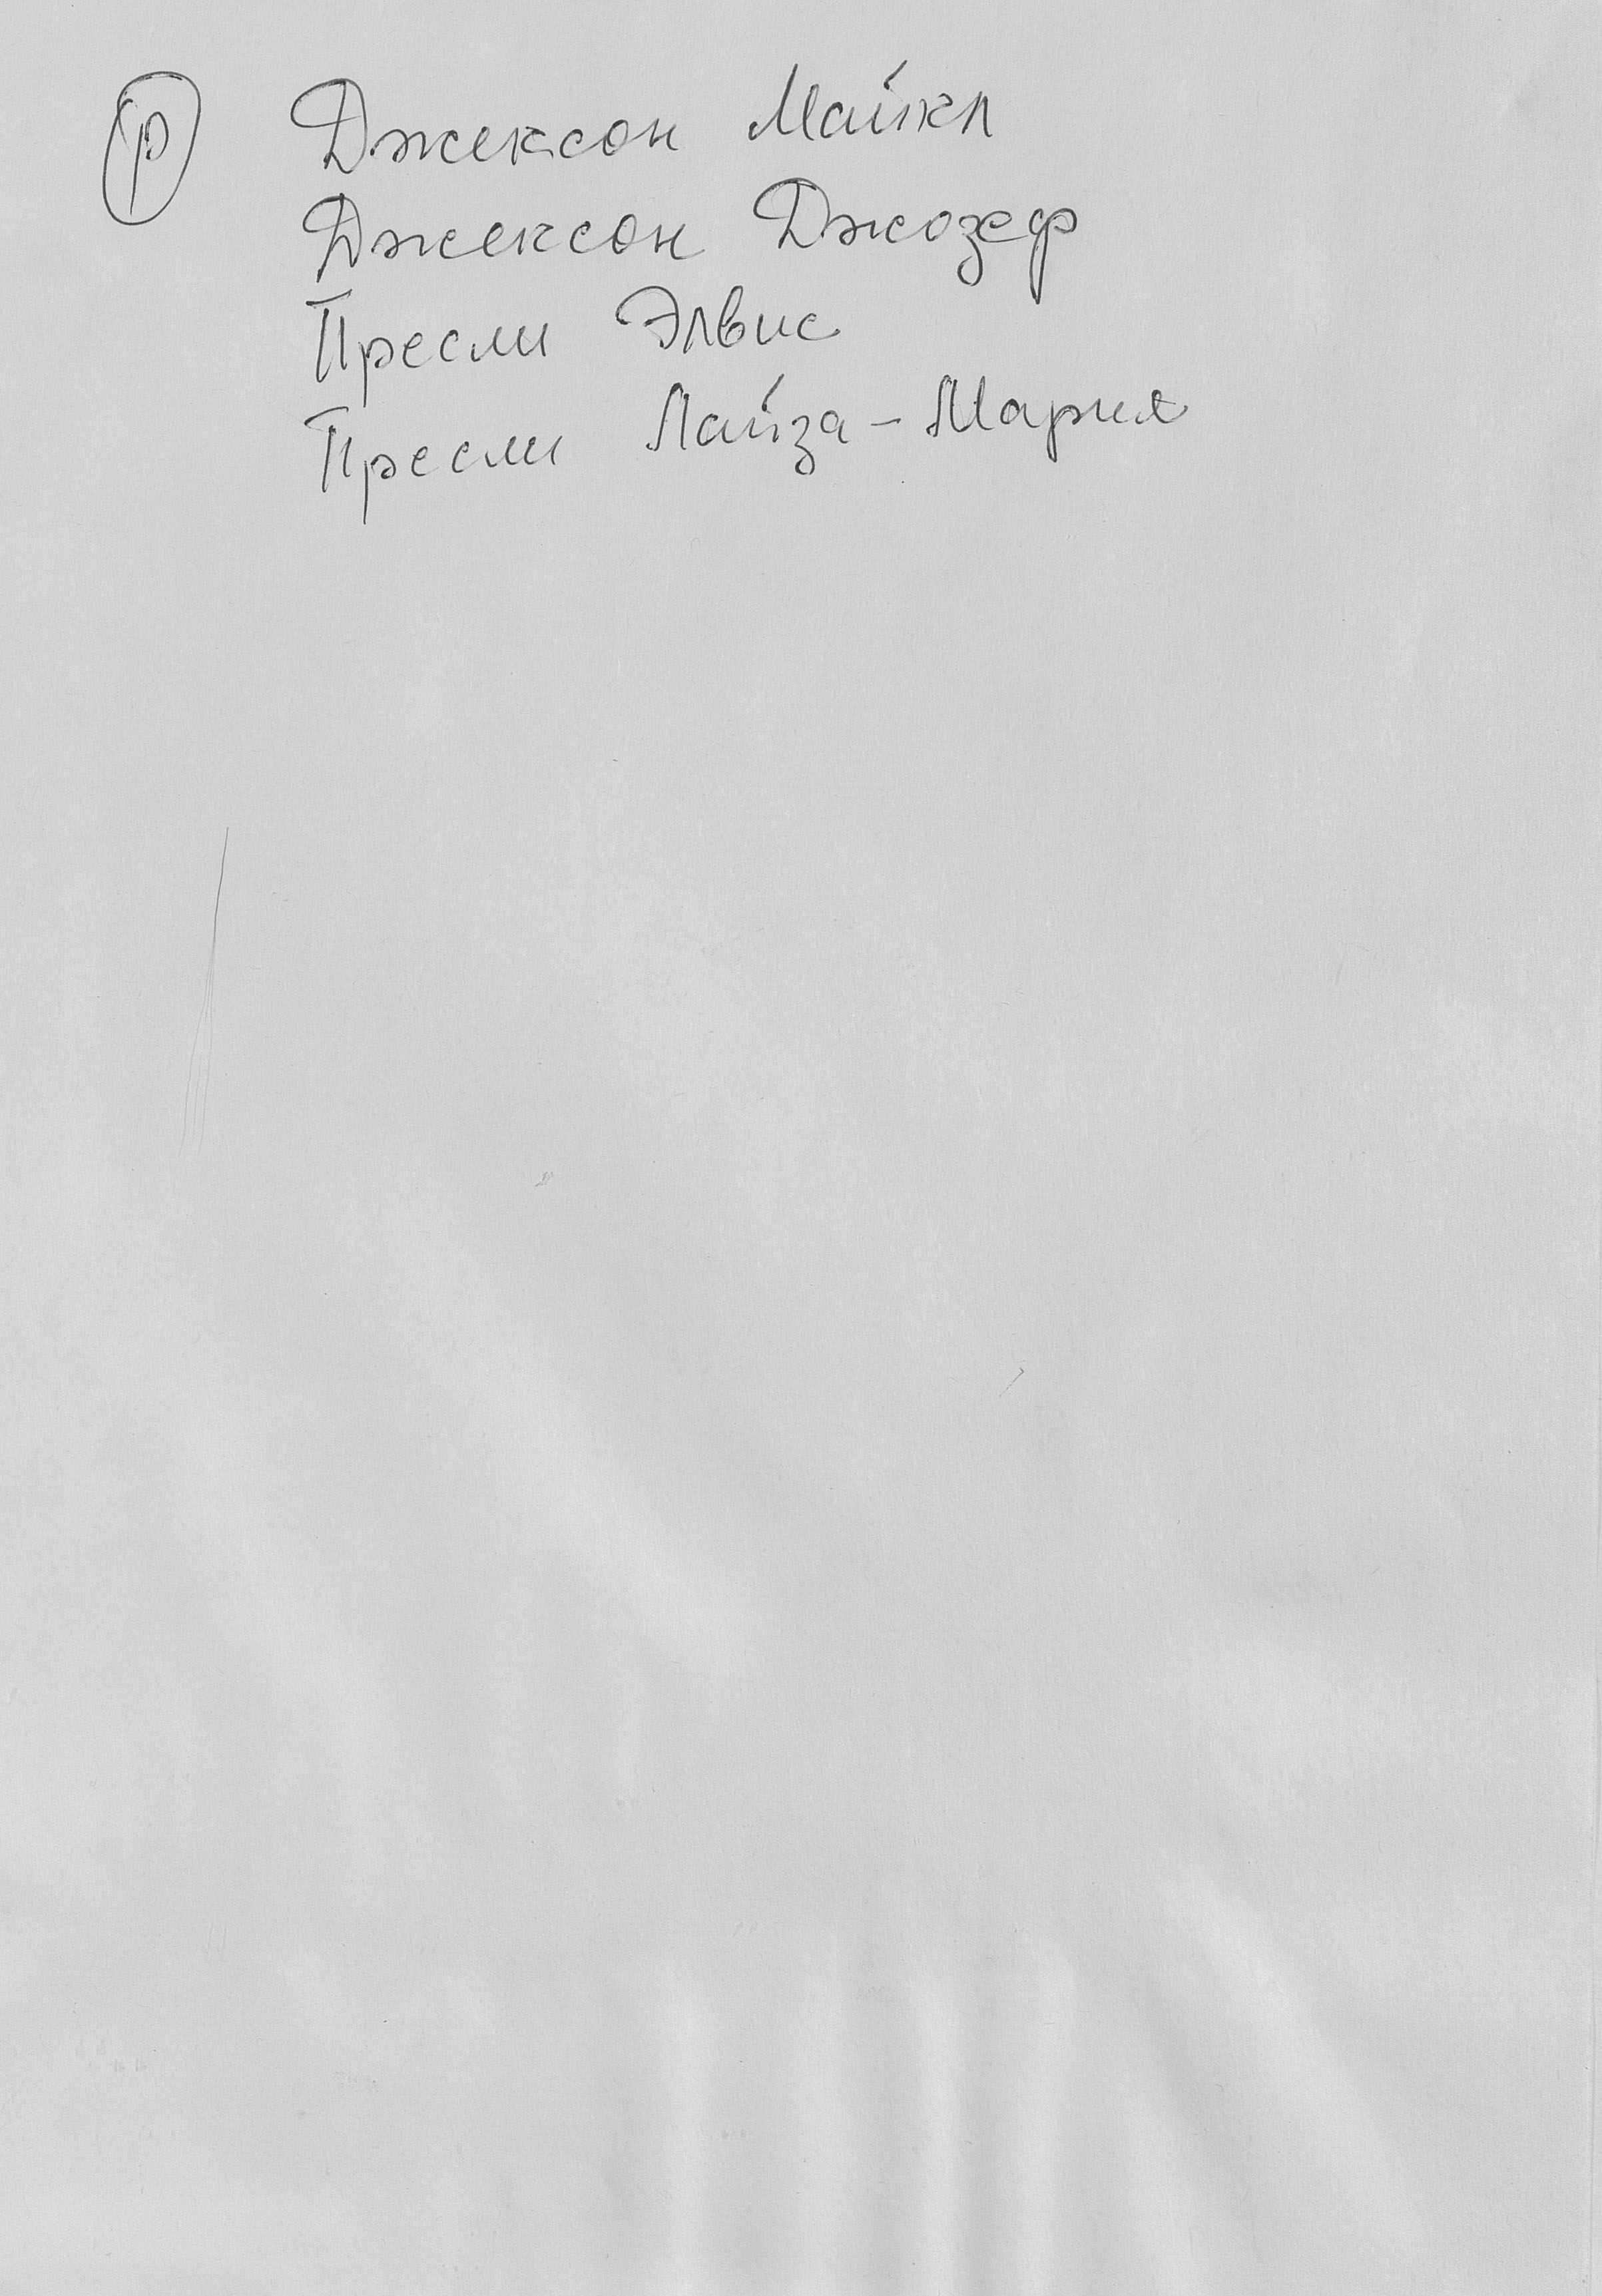 р Джексон Майкл
Джексон Джозеф
Пресли Элвис
Пресли Лайза - Мария